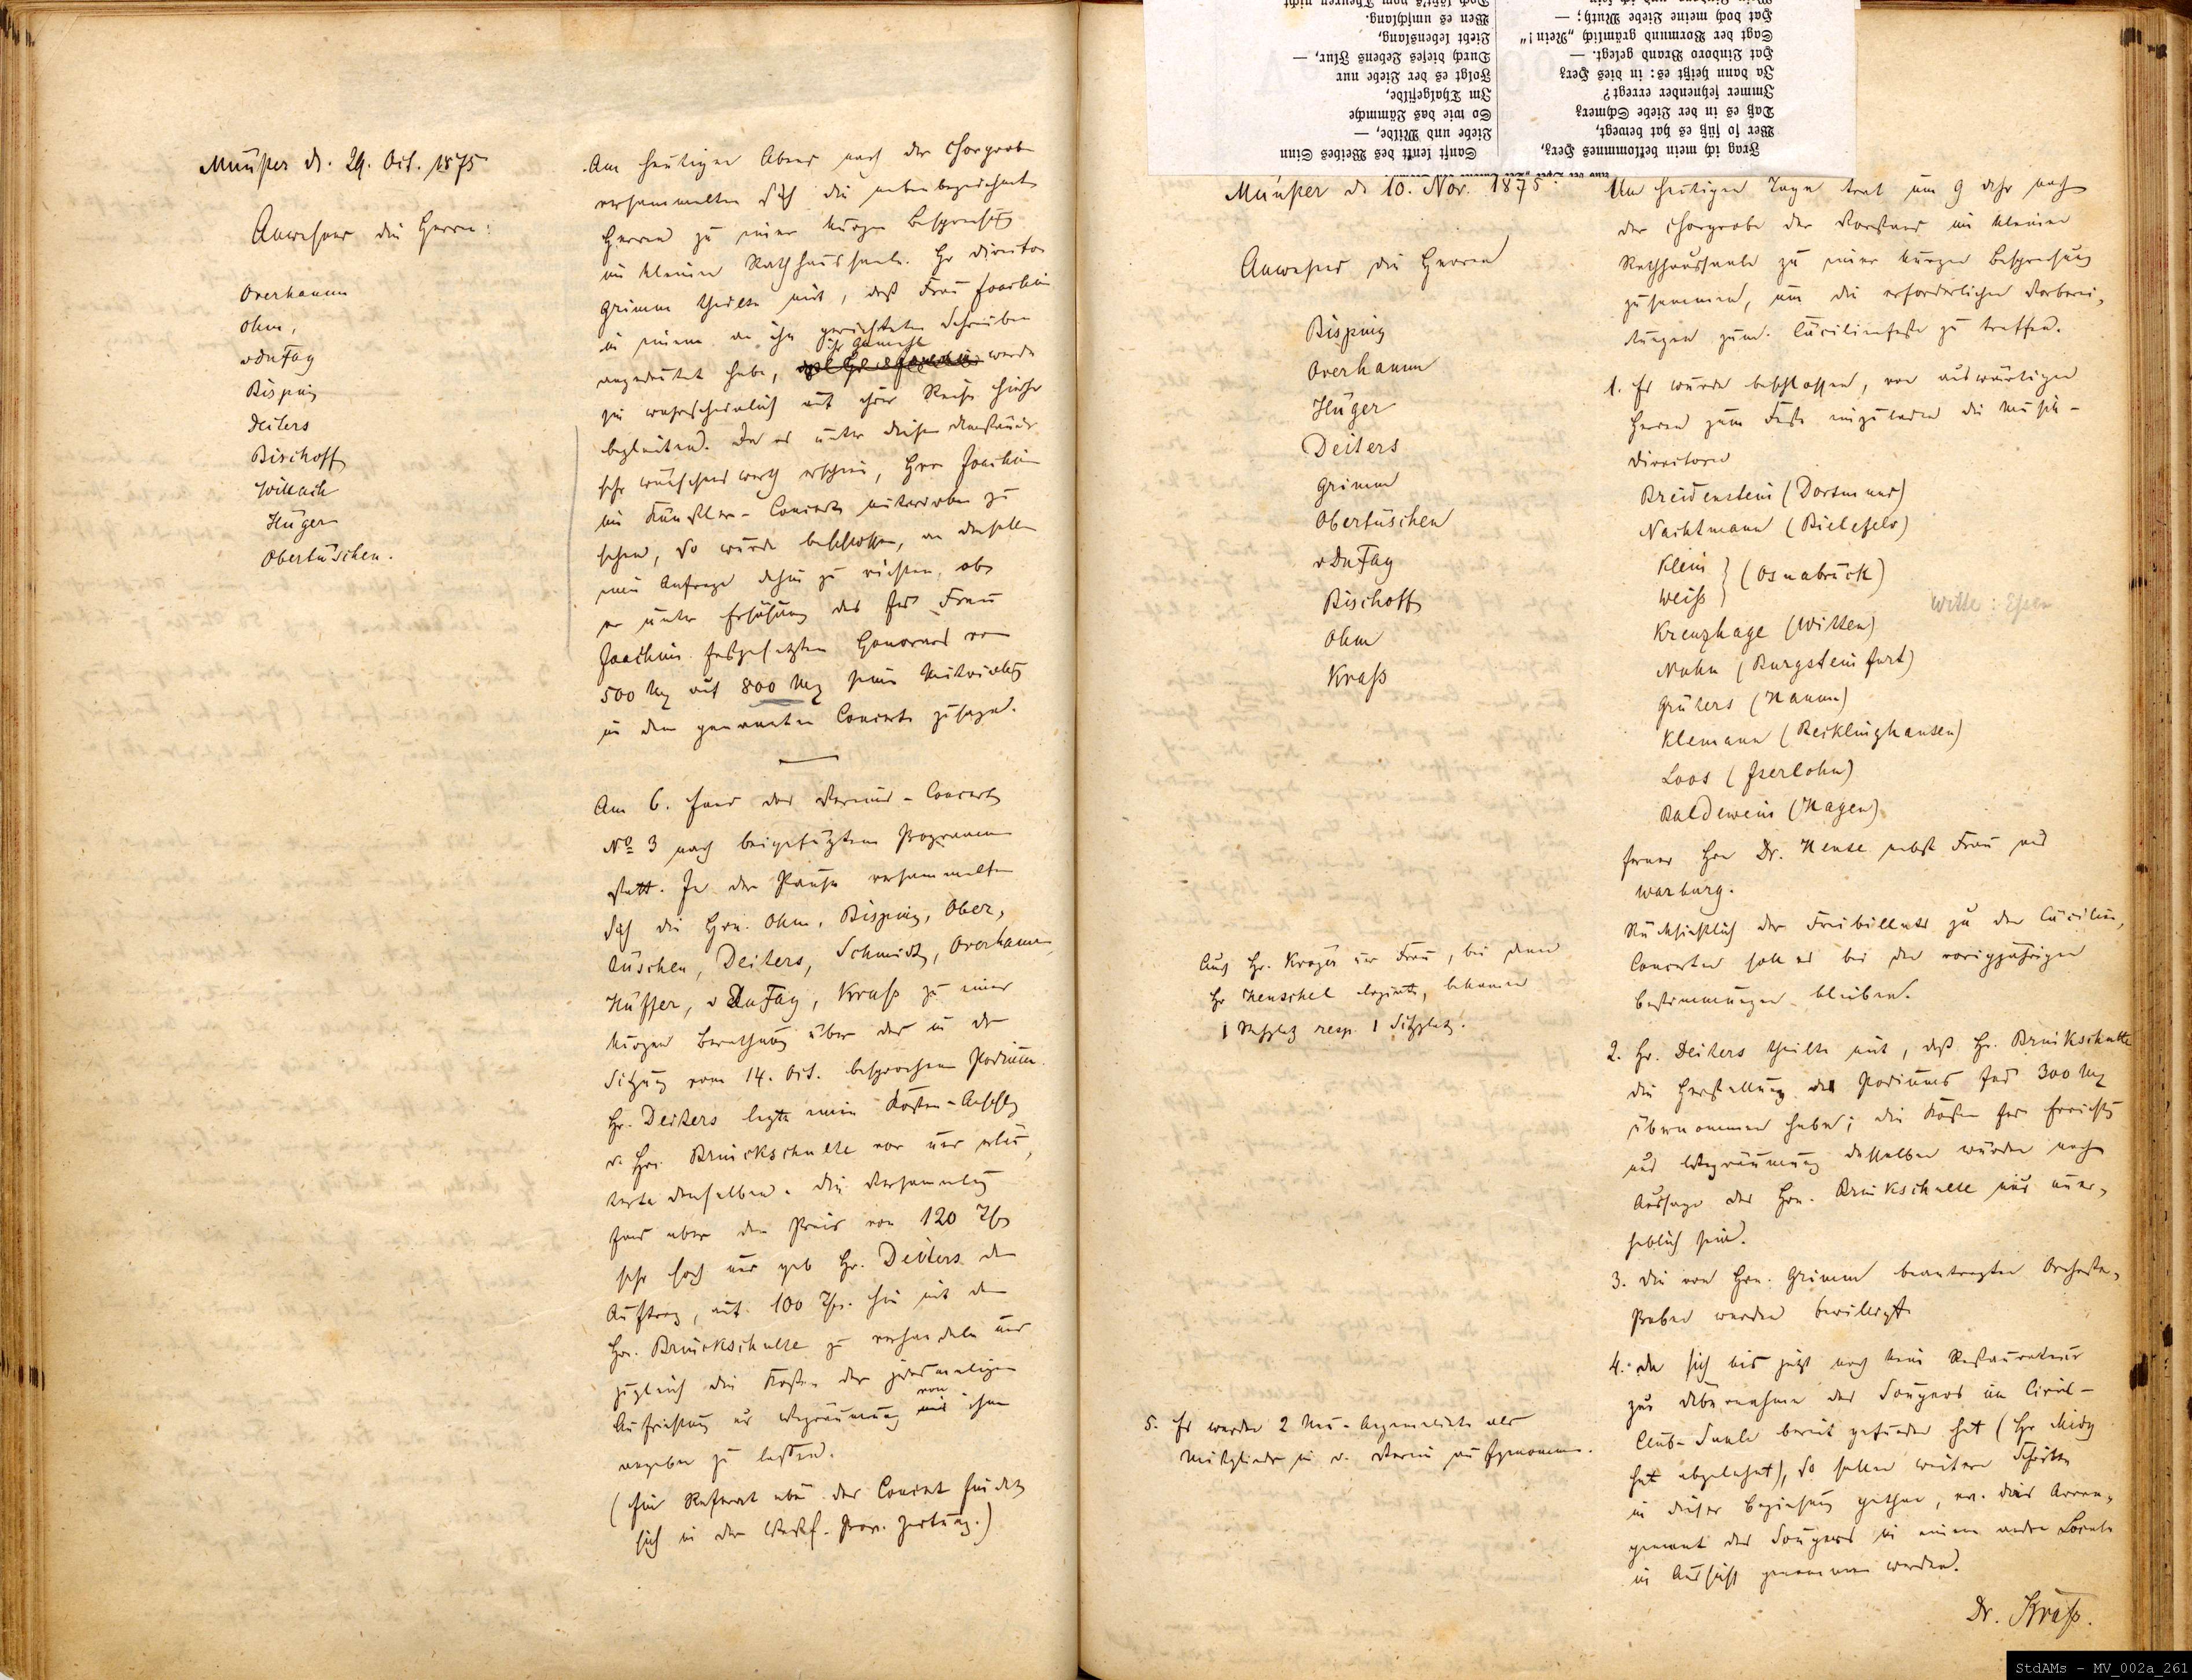 Münster d. 29. Oct. 1875
Anwesend die Herren:
Overhamm
Ohm,
v du Fay
Bisping
Deiters
Bischoff
Willach
Hüger
Obertüschen.
Am heutigen Abend nach der Chorprobe
versammelten sich die nebenbezeichneten
Herren zu einer kurzen Besprechung
im kleinen Rathhaussaale. Hr Director
Grimm theilte mit, daß Frau Joachim
in einem an ihn gerichteten Schreiben
angedeutet habe, ihr Gemahl werde
sie wahrscheinlich auf ihrer Reise hierher
begleiten. Da es unter diesen Umständen
sehr wünschenswerth erschien, Herrn Joachim
im Künstler-Concerte mitwirken zu
sehen, so wurde beschlossen, an denselben
eine Anfrage dahin zu richten, ob
er unter Erhöhung des für Frau
Joachim festgesetzten Honorars von
500 Mk auf 800 Mk seine Mitwirkung
in dem genannten Concerte zusage.
Am 6. fand das Vereins-Concert
No 3 nach beigefügtem Programm
statt. In der Pause versammelten
sich die Hrn. Ohm, Bisping, Ober-
tüschen, Deiters, Schmidt, Overhamm,
Hüffer, v du Fay, Kraß zu einer
kurzen Berathung über das in der
Sitzung vom 14. Oct. besprochene Podium.
Hr. Deiters legte einen Kosten-Anschlag
v. Hrn. Brinckschulte vor und erläu-
terte denselben. Die Versammlung
fand aber den Preis von 120 Thlr
sehr hoch und gab Hr. Deiters den
Auftrag, auf 100 Thlr. hin mit dem
Hrn. Brinckschulte zu verhandeln und
zugleich die Kosten der jedesmaligen
Aufrichtung und Wegräumung von ihm
angeben zu lassen.
(Ein Referat über das Concert findet
sich in der Westf. Prov. Zeitung.)
Sanft lenkt des Weibes Sinn
Liebe und Milde, —
So wie das Lämmche
Im Thalgefilde,
Folgt es der Liebe nur
Durch dieses Lebens Flur, —
Liebt lebenslang,
Wen es umschlang.
Frag ich mein beklommnes Herz,
Wer so süß es hat bewegt,
Daß es in der Liebe Schmerz
Immer sehnender erregt?
Ja dann heißt es: in dies Herz
Hat Lindoro Brand gelegt. —
Sagt der Vormund grämlich „Nein!“
Hat doch meine Liebe Muth; —
Münster d. 10. Nov. 1875.
Anwesend die Herren
Bisping
Overhamm
Hüger
Deiters
Grimm
Obertüschen
v du Fay
Bischoff
Ohm
Kraß
Auch Hr. Krazer und Frau, bei denen
Hr Henschel logirte, bekamen
1 Stehplatz resp. 1 Sitzplatz.
5. Es werden 2 Neu-Angemeldete als
Mitglieder in d. Verein aufgenommen.
Am heutigen Tage trat um 9 Uhr nach
der Chorprobe der Vorstand im kleinen
Rathhaussaale zu einer kurzen Besprechung
zusammen, um die erforderlichen Vorberei-
tungen zum Cäcilienfeste zu treffen.
1. Es wurde beschlossen, von auswärtigen
Herren zum Feste einzuladen die Musik-
directoren
Breidenstein (Dortmund)
Nachtmann (Bielefeld)
Klein
Weiß } (Osnabrück)
Witte: Essen
Kreuzhage (Witten)
Nohn (Burgsteinfurt)
Grüters (Hamm)
Klemann (Recklinghausen)
Loos (Iserlohn)
Baldewein (Hagen)
ferner Hrn Dr. Hense nebst Frau aus
Warburg.
Rücksichtlich der Freibillets zu den Cäcilien-
Concerten soll es bei den vorigjährigen
Bestimmungen bleiben.
2. Hr. Deiters theilte mit, daß Hr. Brinkschulte
die Herstellung des Podiums für 300 Mk
übernommen habe; die Kosten für Errichtung
und Wegräumung desselben würden nach
Aussage des Hrn. Brinkschulte nur uner-
heblich sein.
3. Die von Hrn. Grimm beantragten Orchester-
Proben werden bewilligt.
4. Da sich bis jetzt noch kein Restaurateur
zur Übernahme des Soupers im Civil-
Club-Saale bereit gefunden hat (Hr Midy
hat abgelehnt), so sollen weitere Schritte
in dieser Beziehung gethan, ev. das Arran-
gement des Soupers in einem andern Locale
in Aussicht genommen werden.
Dr. Kraß.
StdAMs - MV_002a_261